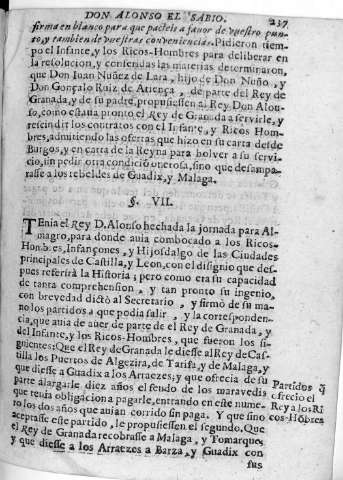 DON ALONSO EL SABIO. 237
firma en blanco para que pacteis a favor de vuestro pun-
to, y tambien de vuestras conveniencias. Pidieron tiem-
po el Infante, y los Ricos-Hombres para deliberar en
la resolucion, y conferidas las materias determinaron,
que Don Iuan Nuñez de Lara, hijo de Don Nuño, y
Don Gonçalo Ruiz de Atiença, de parte del Rey de
Granada, y de su padre, propusiessen al Rey Don Alon-
so, como estaua pronto el Rey de Granada a servirle, y
rescindir los contratos con el Infante, y Ricos Hom-
bres, admitiendo las ofertas que hizo en su carta desde
Burgos, y en carta de la Reyna para bolver a su servi-
cio, sin pedir otra condicion onerosa, sino que desampa-
rasse a los rebeldes de Guadix, y Malaga.
§. VII.
TEnia el Rey D. Alonso hechada la jornada para Al-
magro, para donde auia combocado a los Ricos-
Hombres, Infançones, y Hijosdalgo de las Ciudades
principales de Castilla, y Leon, con el disignio que des-
pues referirà la Historia; pero como era su capacidad
de tanta comprehension, y tan pronto su ingenio,
con brevedad dictò al Secretario, y firmò de su ma-
no los partidos a que podia salir, y la corresponden-
cia, que auia de auer de parte del Rey de Granada, y
del Infante, y los Ricos-Hombres, que fueron los si-
guientes: Que el Rey de Granada le diesse al Rey de Cas-
tilla los Puertos de Algezira, de Tarifa, y de Malaga, y
que diesse a Guadix a los Arraezes; y que ofrecia de su
parte alargarle diez años el feudo de los maravedis
que tenia obligacion a pagarle, entrando en este nume-
ro los dos años que auian corrido sin paga. Y que sino
aceptasse este partido, le propusiessen el segundo. Que
el Rey de Granada recobrasse a Malaga, y Tomarques,
y que diesse a los Arraezes a Barza, y Guadix con
sus
Partidos q̃
ofrecio el
Rey a los Ri
cos-Hõbres